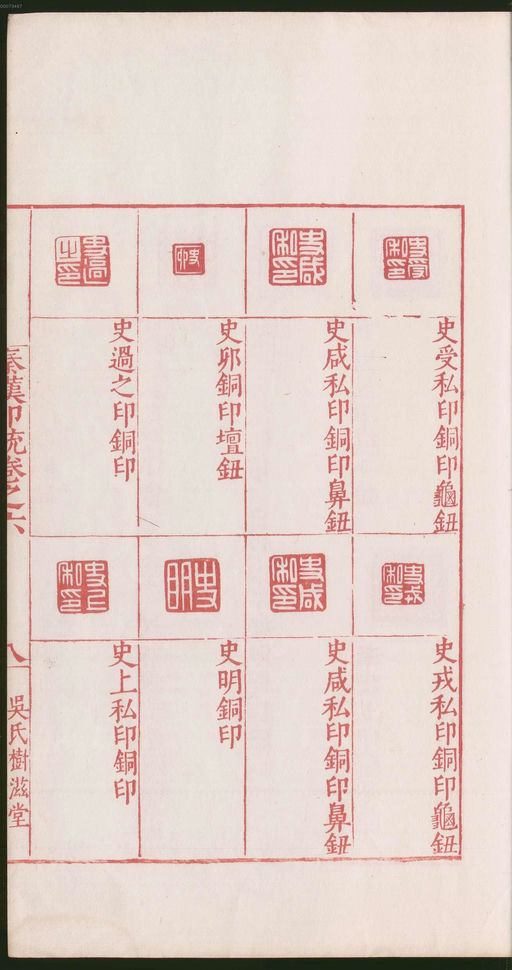 史受私印銅印龜鈕
史咸私印銅印鼻鈕
史卯銅印壇鈕
史過之印銅印
史戎私印銅印龜鈕
史咸私印銅印鼻鈕
史明銅印
史上私印銅印
秦漢印統卷之六
八
吳氏樹滋堂
00073447